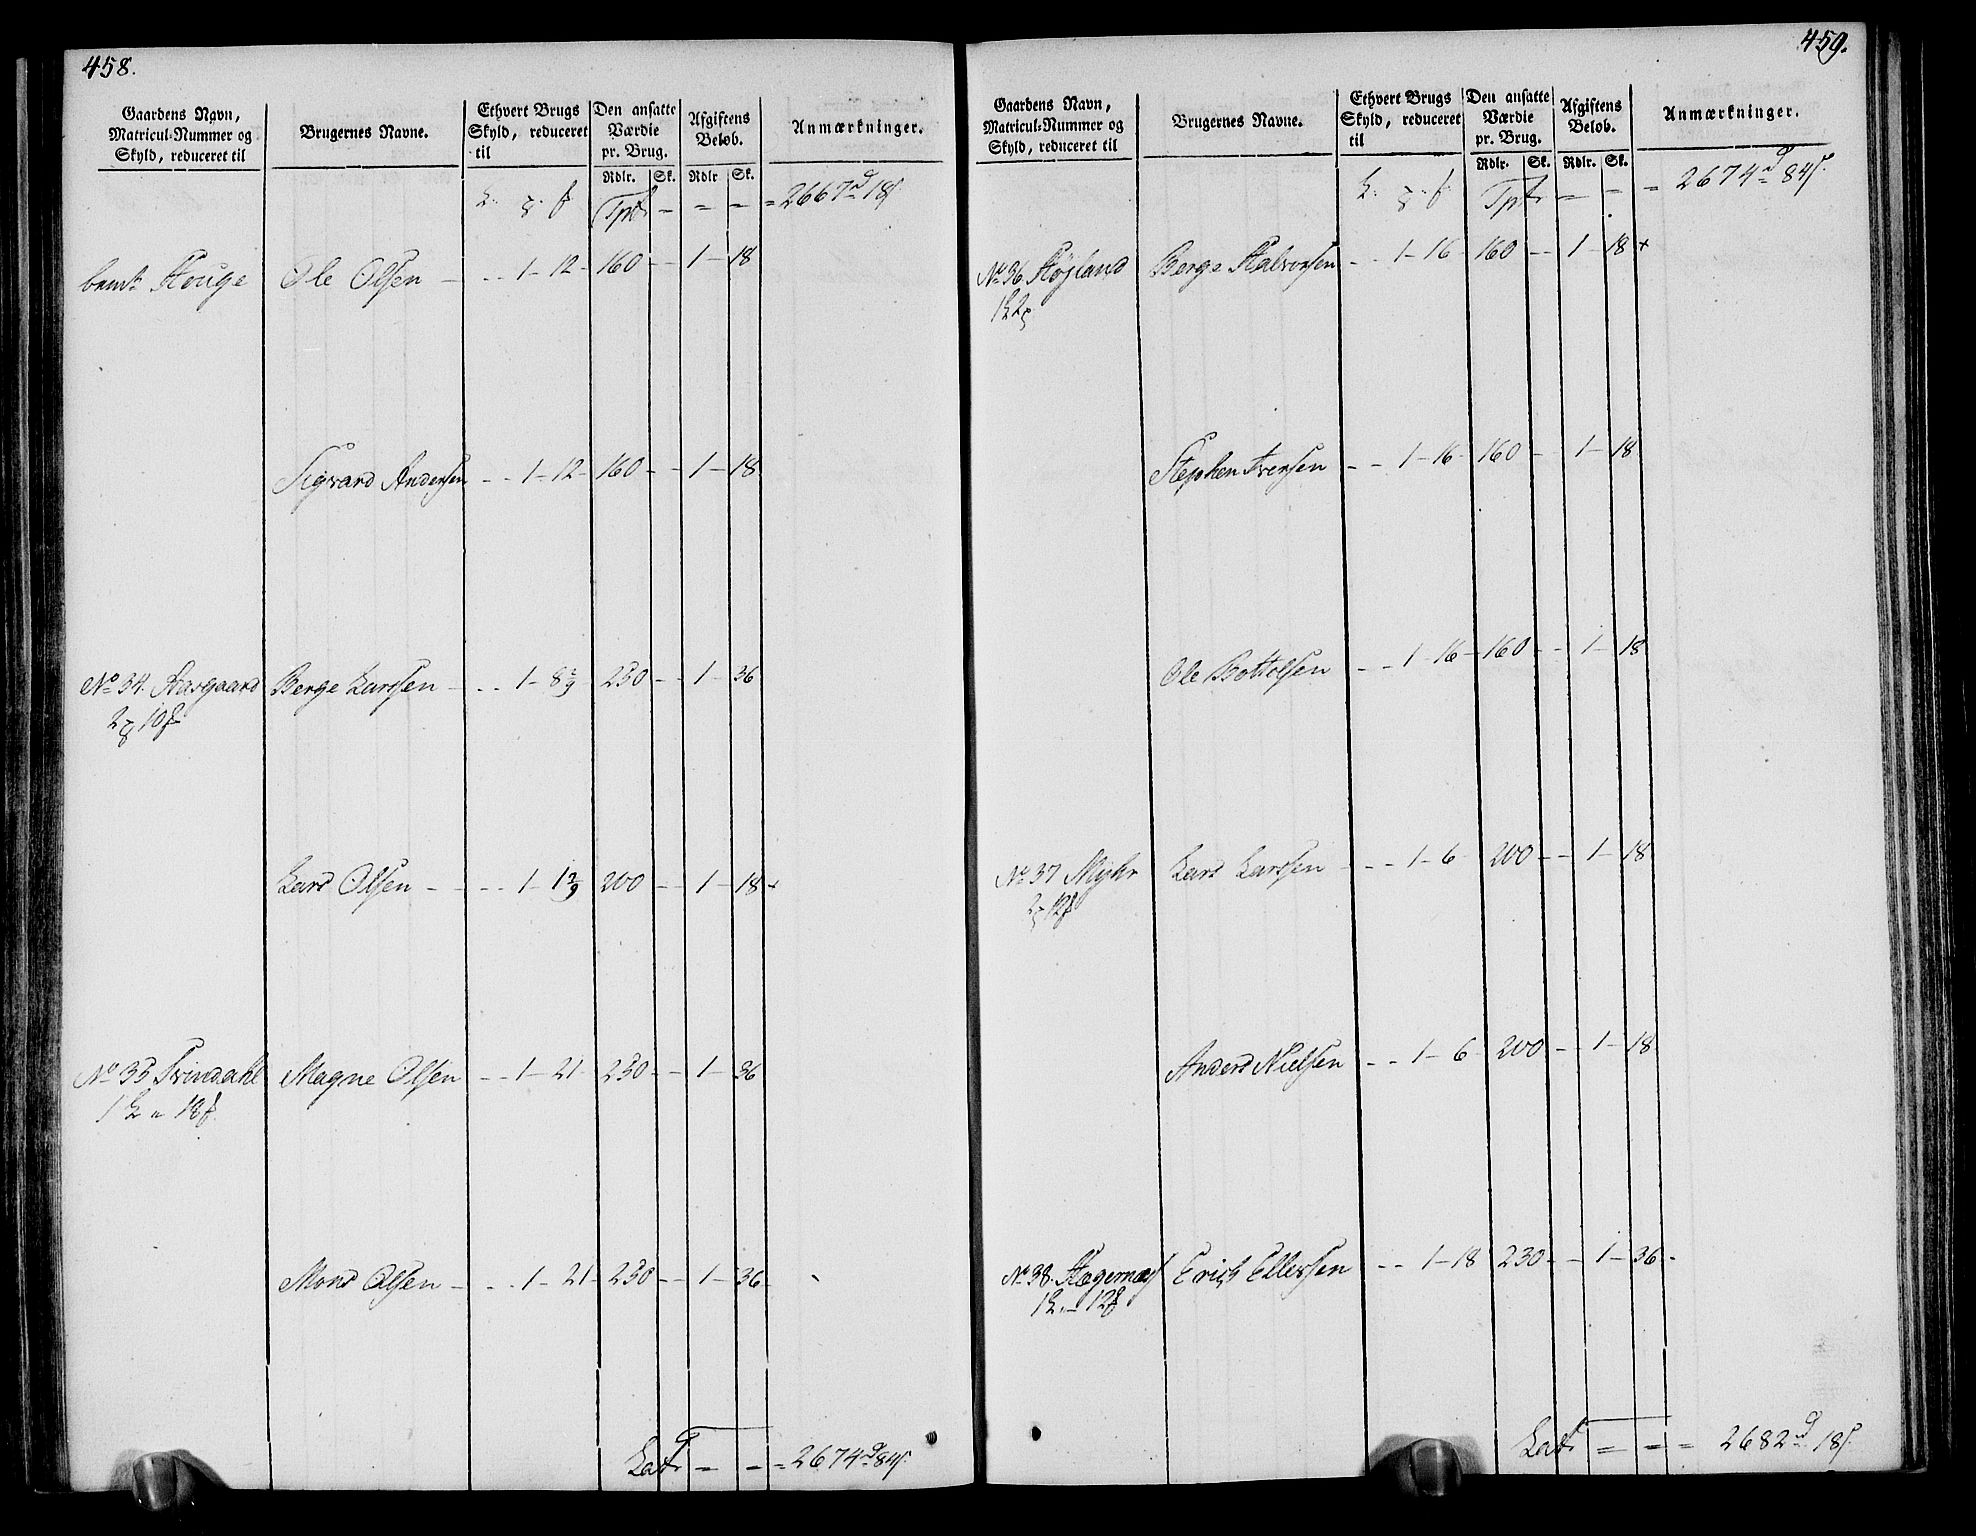 458.
Gaardens Navn, Matricul-Nummer og Skyld, reduceret til
Brugernes Navne.
Ethvert Brugs Skyld, reduceret til
Den ansatte Værdie pr. Brug.
Afgiftens Beløb.
Anmærkninger.
Rdlr. Sk. Rdlr Sk.
Tpt = = = = 2667 d 18 s
Houge Ole Olsen - - - 1 - 12 - 160 - - 1 - 18
Sigvard Andersen - - 1 - 12 - 160 - - 1 - 18.
No 34. Aasgaard Berge Larssen - - - 1 - 8 230 - - 1 - 36
2 10
Lars Olsen - - - - 1 - 1 2/9 200 - - 1 - 18 +
No 35 Trindahl Magne Olsen - - 1 - 21 - 230 - - 1 - 36
1 " 18
Mons Olsen - - - 1 - 21 - 230 - - 1 - 36
Lat = = = 2674 d 84 s.
459.
Gaardens Navn, Matricul-Nummer og Skyld, reduceret til
Brugernes Navne.
Ethvert Brugs Skyld, reduceret til
Den ansatte Værdie pr. Brug.
Afgiftens Beløb.
Anmærkninger.
Rdlr. Sk. Rdlr. Sk.
Tpt = = = 2674 d 84 s.
No 36 Høyland Berge Halvorsen - - 1 - 16 160 - - 1 - 18 +
1 2
Stephen Iversen - - 1 - 16 - 160 - 1 - 18
Ole Bottolsen - - 1 - 16 - 160 - - 1 - 18
No 37 Myhr Lars Larssen - - - 1 - 6 200 - - 1 - 18
2 12
Anders Nielsen - - 1 - 6 - 200 - - 1 - 18
No 38. Hægernæs Erich Ellerssen - - 1 - 18 230 - - 1 - 36 -
1 " 12
Lat = = = 2682 d 18 s.